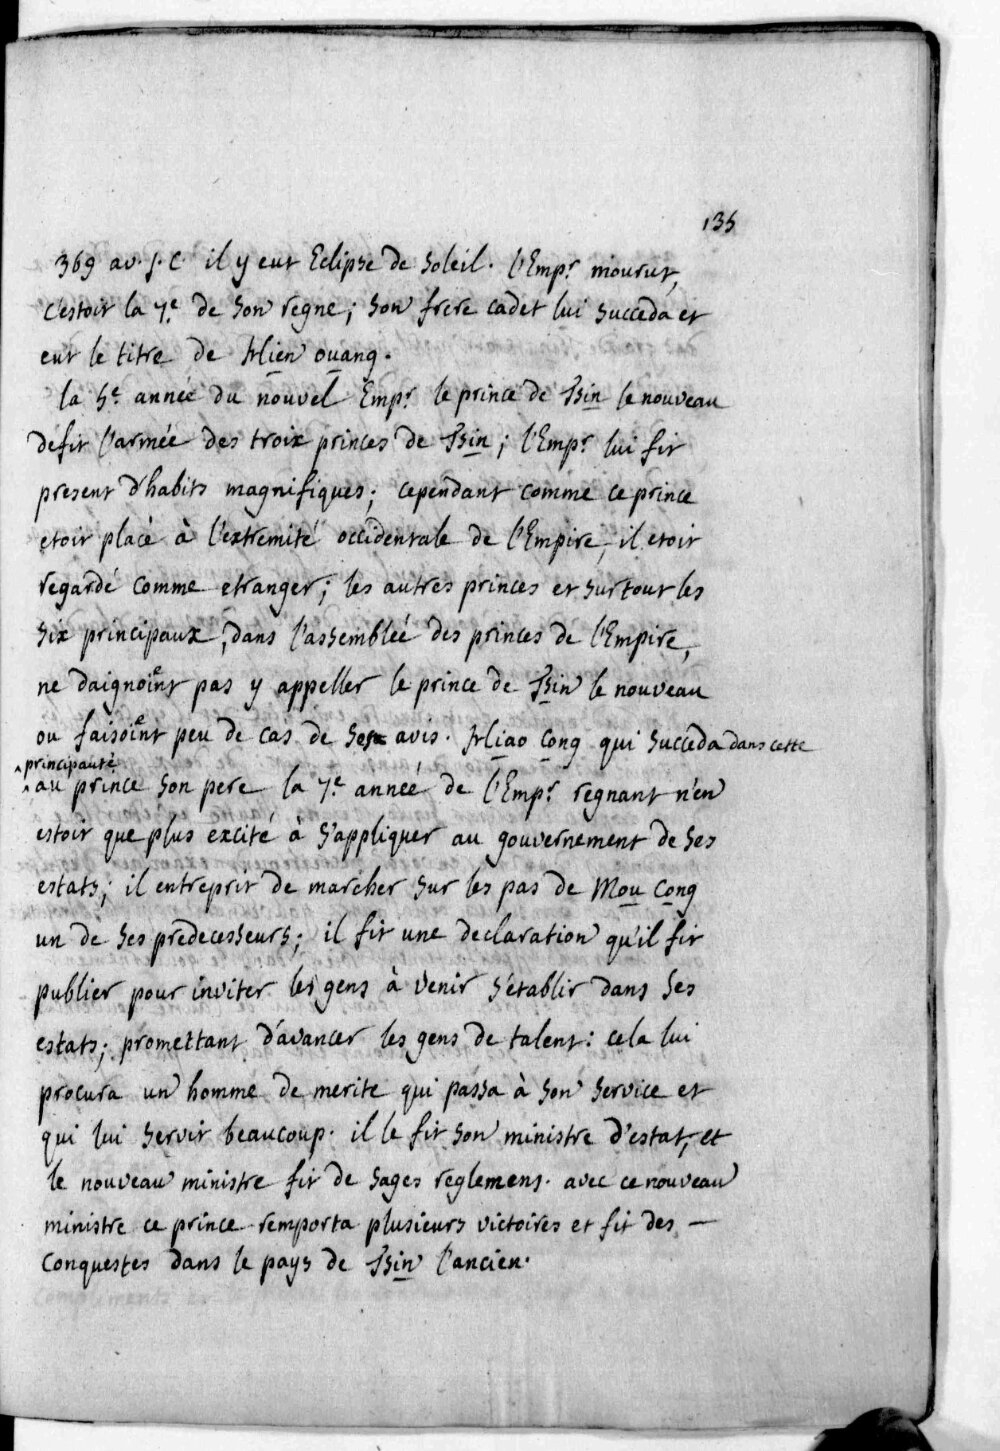 135
369 av. J. C. il y eut Eclipse de Soleil. l'Emp.r mourut,
c'estoit la 7.e de son regne; son frere cadet lui succeda et
eut le titre de Hien ouang.
la 5.e année du nouvel Emp.r le prince de Tsin le nouveau
defit l'armée des troix princes de Tsin; l'Emp.r lui fit
present d'habits magnifiques; cependant comme ce prince
etoit placé à l'extremité occidentale de l'Empire, il etoit
regardé comme etranger; les autres princes et surtout les
six principaux, dans l'assemblée des princes de l'Empire,
ne daignoient pas y appeller le prince de Tsin le nouveau
ou faisoient peu de cas de ses avis. Hiao Cong qui succeda dans cette
principauté
au prince son pere la 7.e année de l'Emp.r regnant n'en
estoit que plus excité à s'appliquer au gouvernement de ses
estats; il entreprit de marcher sur les pas de Mou Cong
un de ses predecesseurs; il fit une declaration qu'il fit
publier pour inviter les gens à venir s'établir dans ses
estats; promettant d'avancer les gens de talent: cela lui
procura un homme de merite qui passa à son service et
qui lui servit beaucoup. il le fit son ministre d'estat, et
le nouveau ministre fit de sages reglemens. avec ce nouveau
ministre ce prince remporta plusieurs victoires et fit des
Conquestes dans le pays de Tsin l'ancien.